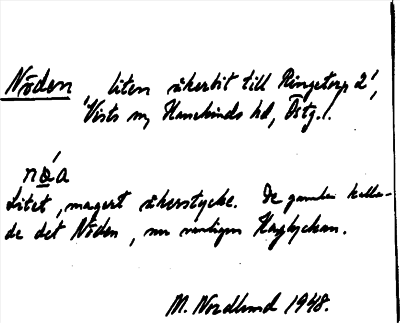 Nöden, liten åkerbit till Ringetorp 2',
Vists sn, Hanekinds hd, Östg.
nǿa
Litet, magert åkerstycke. De gamla kalla-
de det Nöden, nu vanligen Haglyckan.
M. Nordlund 1948.